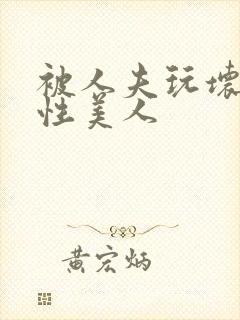 被人夫玩壞
性美人
黄宏炳